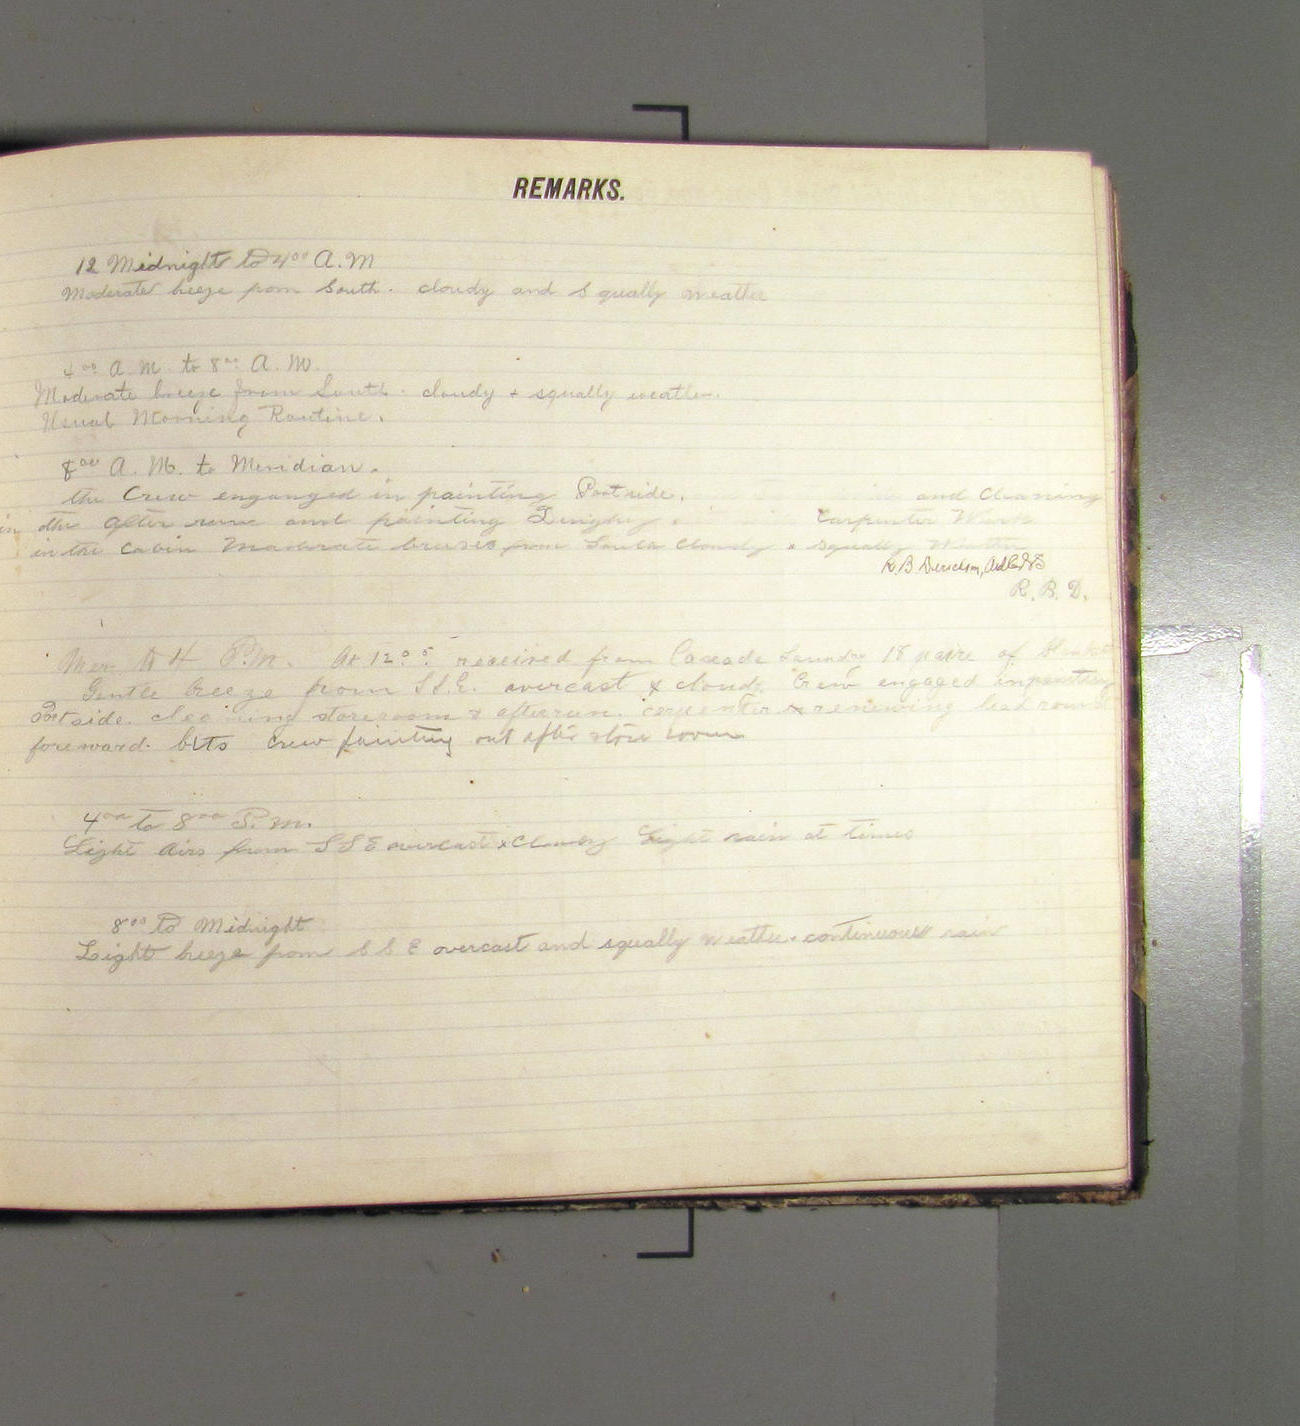 REMARKS.
12 Midnight to 4⁰⁰ A.M
Moderate breeze from South. cloudy and Squally weather
4⁰⁰ A.M. to 8⁰⁰ A.M.
Moderate breeze from South. cloudy + squally weather.
Usual Morning Routine.
8⁰⁰ A.M. to Meridian.
the Crew enganged in painting Portside. and Cleaning
in the after and painting Dinghy. Carpenter Work
in the Cabin Moderate breeses from South Cloudy & Squally Weather
R. B. D.
Mer. to 4 P.M. At 12⁰⁵ received from Cascade Laundry 18 paire of blanket
Gentle breeze from S.S.E. overcast & cloudy. Crew engaged in painting
Portside. cleaning storeroom & afterrun. carpenter renewing lead round
foreward. bits Crew painting out after store room
4⁰⁰ to 8⁰⁰ P.M.
Light Airs from SSE overcast & Cloudy Light rain at times
8⁰⁰ to Midnight
Light breeze from S S E overcast and squally weather. continuous rain